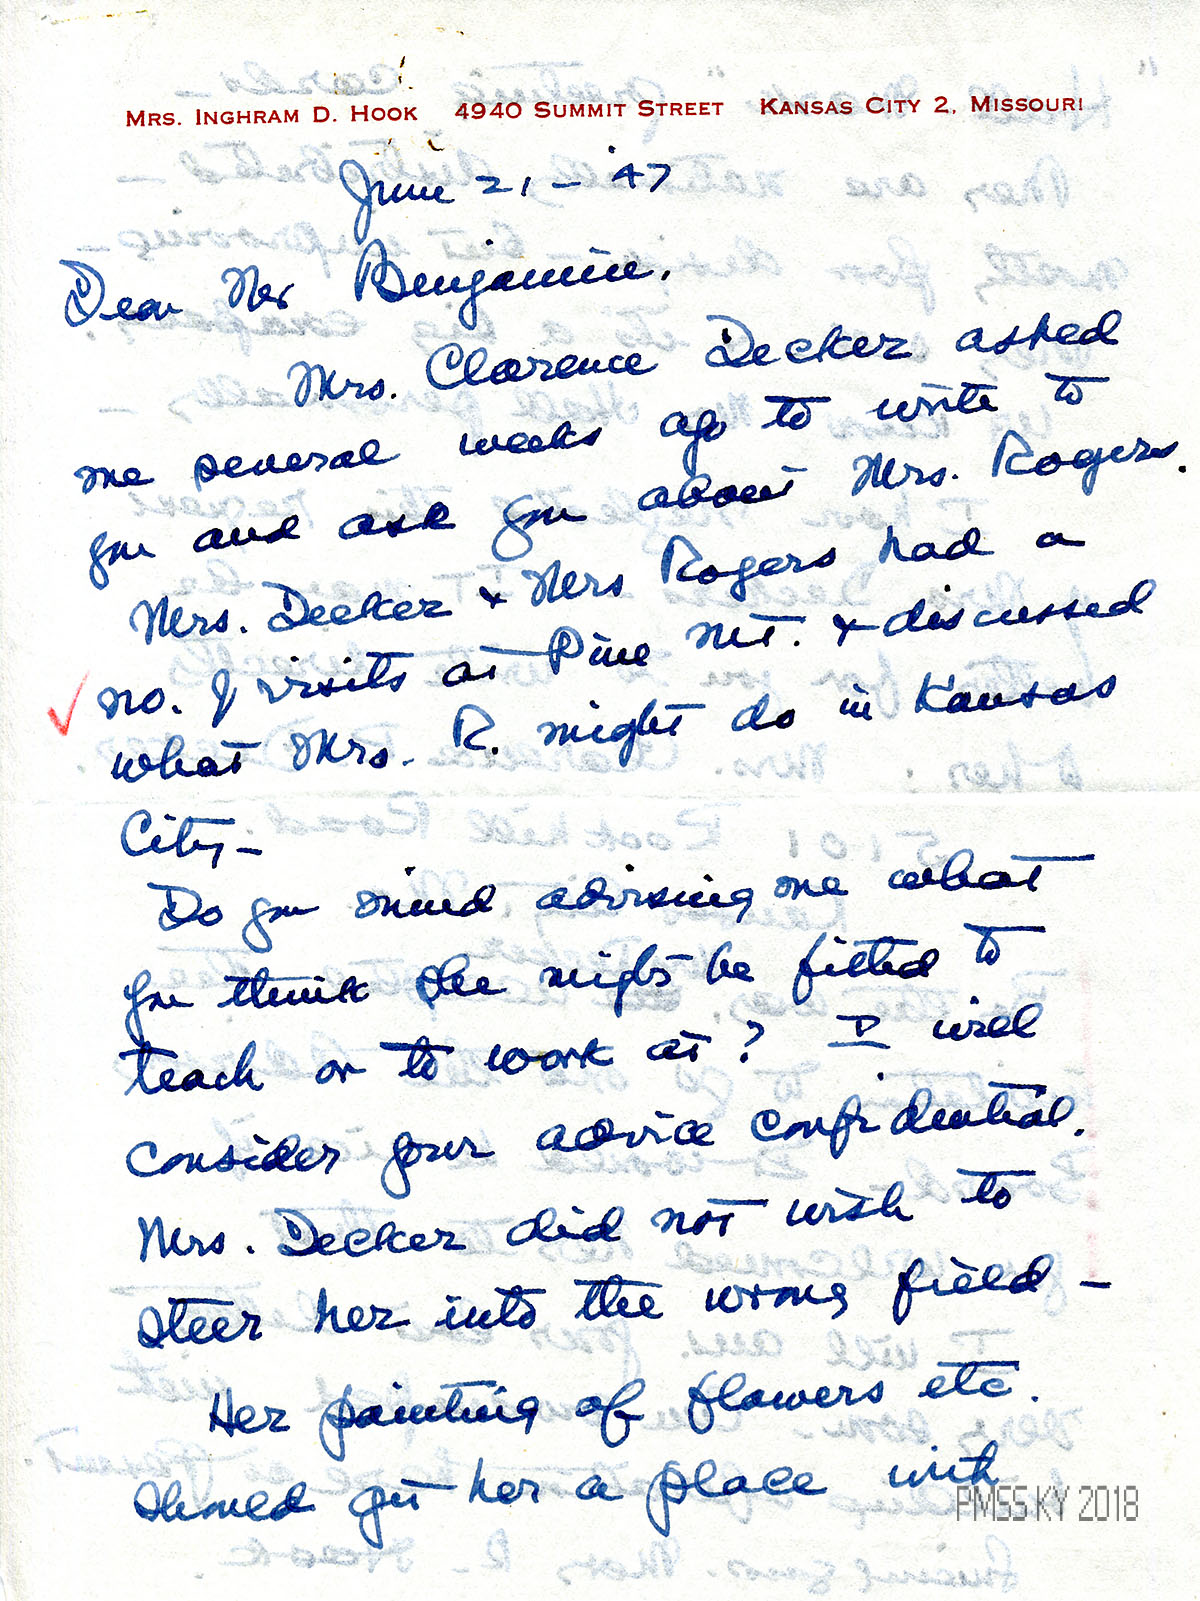 MRS. INGHRAM D. HOOK 4940 SUMMIT STREET KANSAS CITY 2, MISSOURI
June 21 - '47
Dear Mr Benjamin.
Mrs. Clarence Decker asked
me several weeks ago to write to
you and ask you about Mrs. Rogers.
Mrs. Decker & Mrs Rogers had a
no. of visits at Pine Mt. & discussed
what Mrs. R. might do in Kansas
City -
Do you mind advising me what
you think she might be fitted to
teach or to work at? I will
consider your advice confidential.
Mrs. Decker did not wish to
steer her into the wrong field -
Her painting of flowers etc.
should get her a place with
PMSS KY 2018